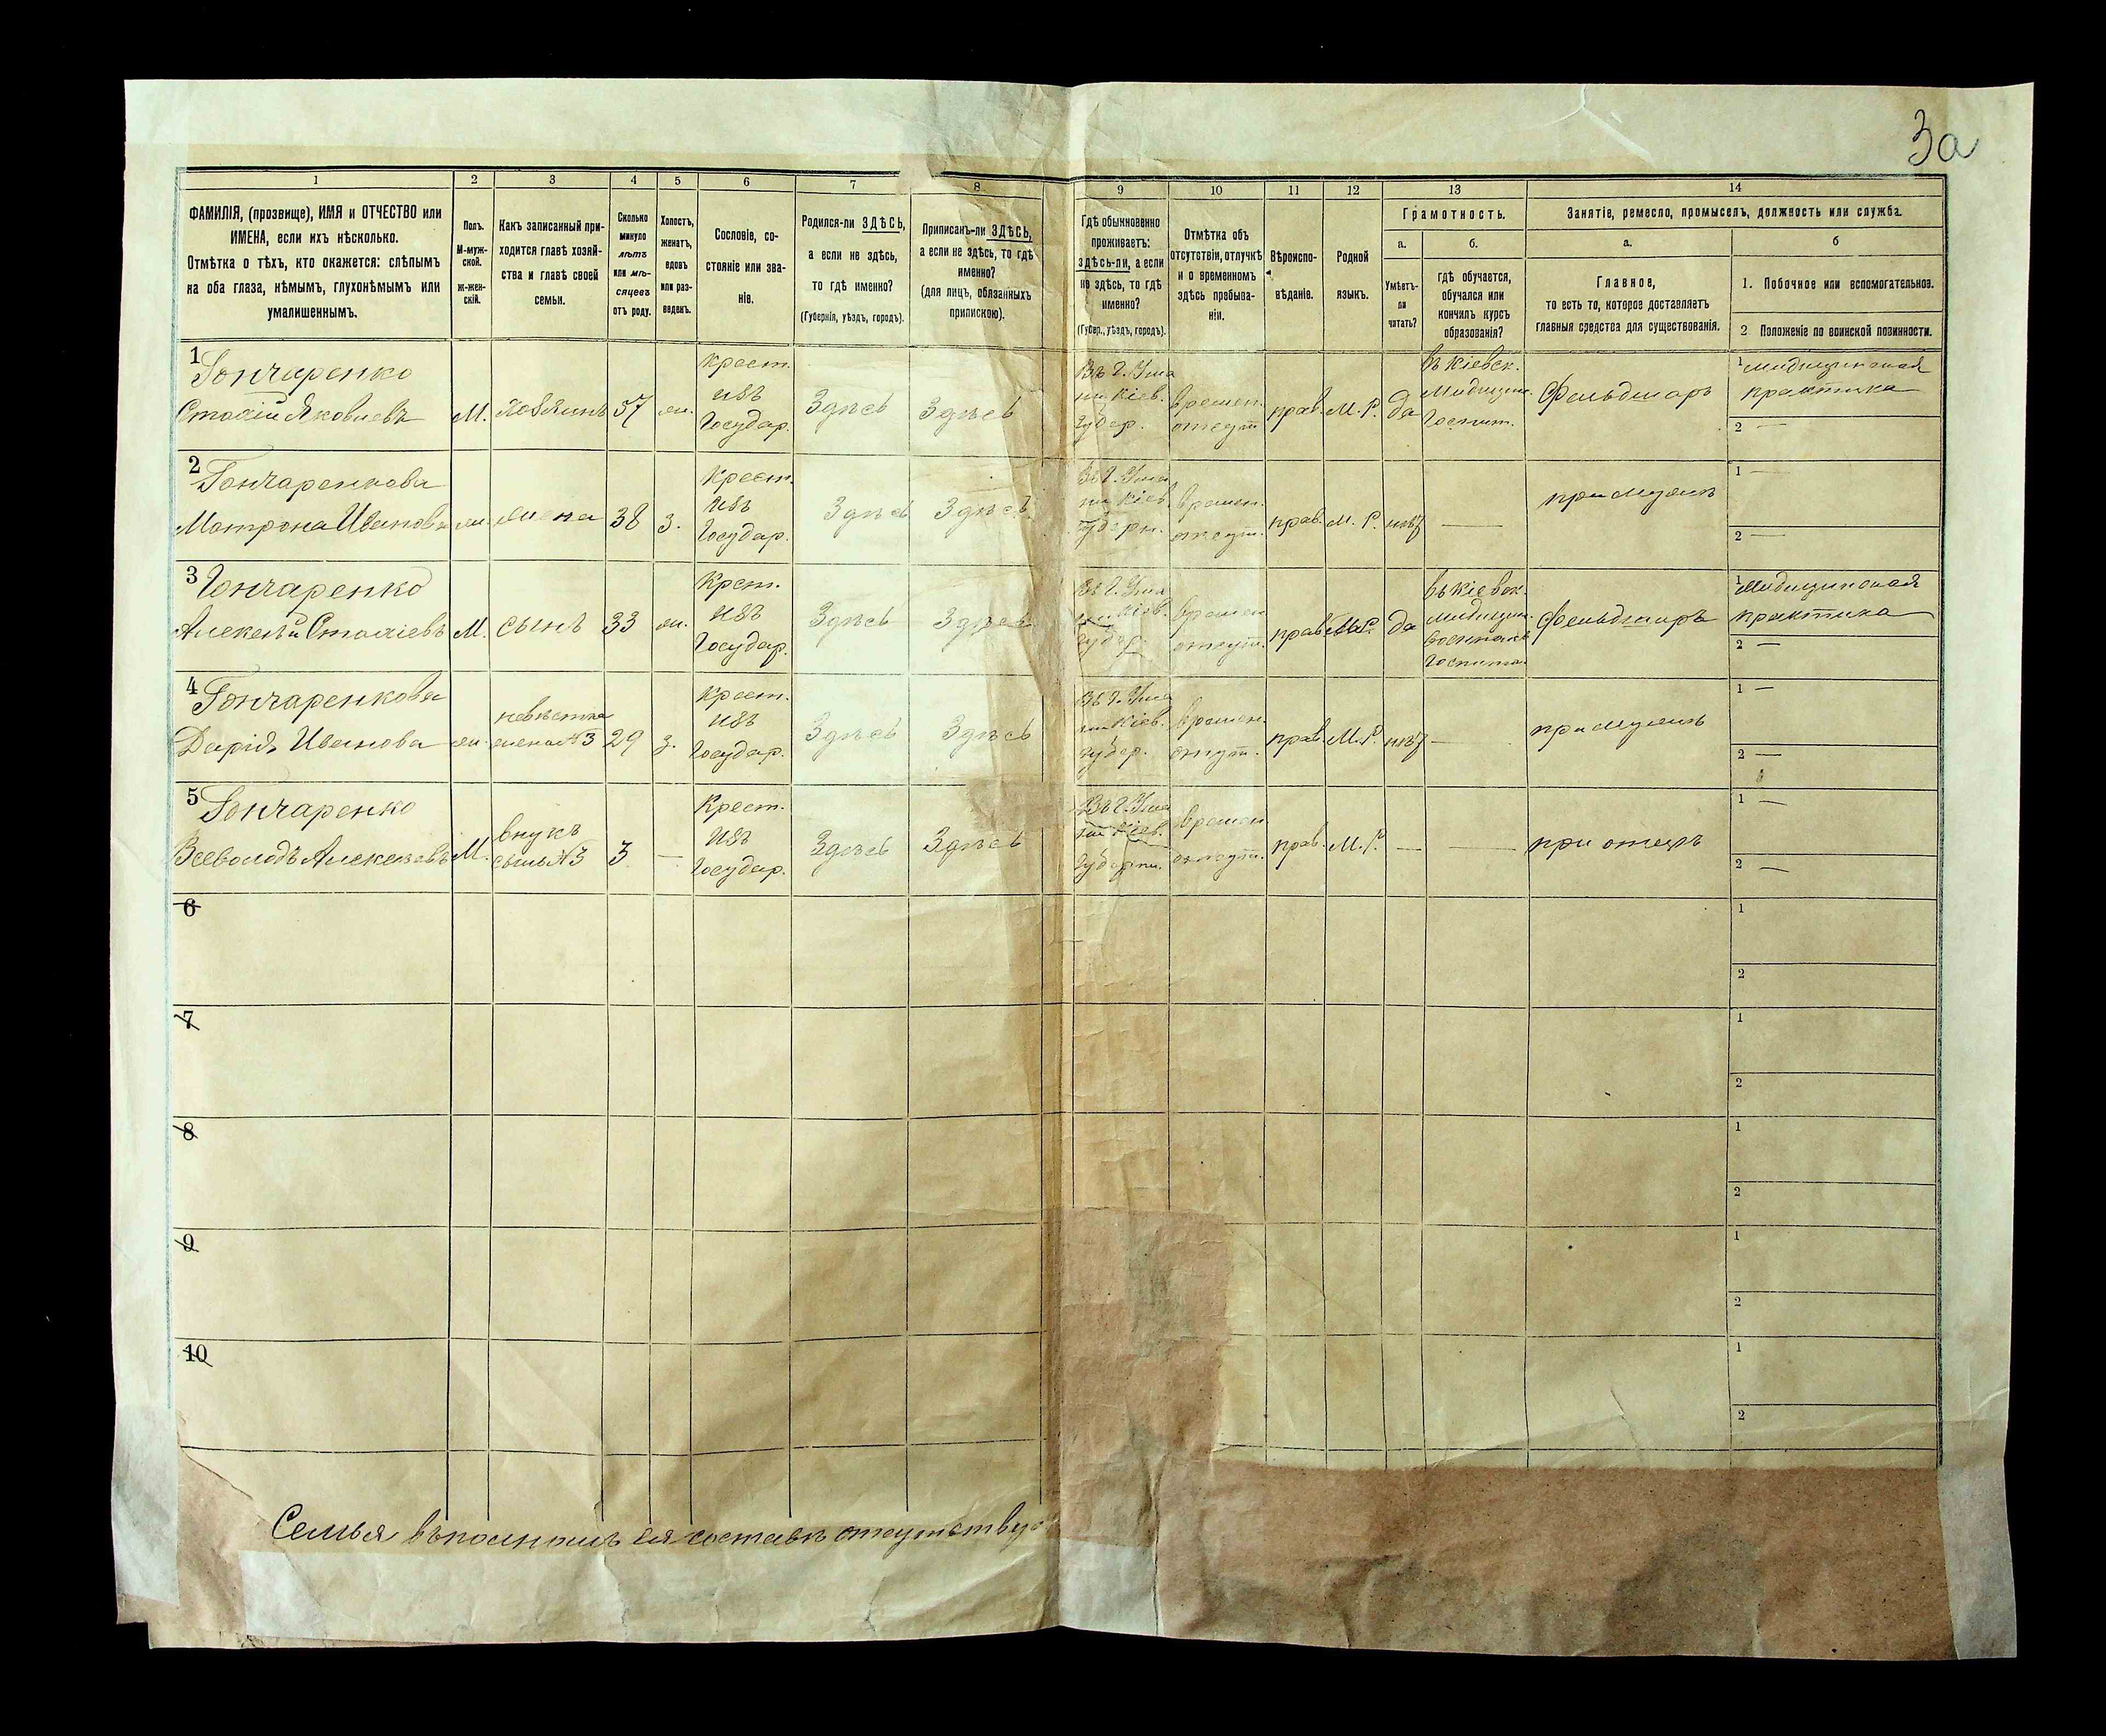 3а
1
2
3
4
5
6
7
8
9
10
11
12
13
14
ФАМИЛІЯ, (прозвище), ИМЯ и ОТЧЕСТВО или
ИМЕНА, если ихъ нѣсколько.
Отмѣтка о тѣхъ, кто окажется: слѣпымъ
на оба глаза, нѣмымъ, глухонѣмымъ или
умалишеннымъ.
Полъ.
М-муж-
ской.
Ж-жен-
скій.
Какъ записанный при-
ходится главѣ хозяй-
ства и главѣ своей
семьи.
Сколько
минуло
лѣтъ
или мѣ-
сяцевъ
отъ роду.
Холостъ,
женатъ,
вдовъ
или раз-
веденъ.
Сословіе, со-
стояніе или зва-
ніе.
Родился-ли ЗДѢСЬ,
а если не здѣсь,
то гдѣ именно?
(Губернія, уѣздъ, городъ).
Приписанъ-ли ЗДѢСЬ,
а если не здѣсь, то гдѣ
именно?
(для лицъ, обязанныхъ
припискою).
Гдѣ обыкновенно
проживаетъ:
здѣсь-ли, а если
не здѣсь, то гдѣ
именно?
(Губер., уѣздъ, городъ).
Отмѣтка объ
отсутствіи, отлучкѣ
и о временномъ
здѣсь пребыва-
ніи.
Вѣроиспо-
вѣданіе.
Родной
языкъ.
Грамотность.
а.
Умѣетъ-
ли
читать?
б.
гдѣ обучается,
обучался или
кончилъ курсъ
образованія?
Занятіе, ремесло, промыселъ, должность или служба.
а.
Главное,
то есть то, которое доставляетъ
главныя средства для существованія.
б
1. Побочное или вспомогательное.
2. Положеніе по воинской повинности.
1
Гончаренко
Стахій Яковлевъ
М.
Хозяинъ
57
ж.
крест.
изъ
Государ.
Здѣсь
Здѣсь
Въ г. Ума
ни Кіев.
Губер.
времен.
отсут.
прав.
М. Р.
да
въ Кіевск.
Медицин.
Госпит.
Фельдшаръ
1 медицинская
практика
2 —
2
Гончаренкова
Матрона Иванова
ж.
жена
38
з.
Крест.
изъ
Государ.
Здѣсь
Здѣсь
Въ г. Ума
ни Кіев.
Губерн.
времен.
отсут.
прав.
М. Р.
нѣтъ
—
при мужѣ
1 —
2 —
3
Гончаренко
Алексѣй Стахіевъ
М.
сынъ
33
ж.
Крест.
изъ
Государ.
Здѣсь
Здѣсь
Въ г. Ума
ни Кіев.
Губер.
времен
отсут.
прав
М. Р.
да
въ Кіевск.
медицин.
Госпита.
Фельдшаръ
1 Медицинская
практика
2 —
4
Гончаренкова
Дарія Иванова
ж.
невѣстка
жена №3
29
з.
Крест.
изъ
Государ.
Здѣсь
Здѣсь
Въ г. Ума
ни Кіев.
губер.
времен.
отсут.
прав.
М. Р.
нѣтъ
—
при мужѣ
1 —
2 —
5
Гончаренко
Всеволодъ Алексѣевъ
М.
внукъ
сынъ №3
3
—
Крест.
изъ
Государ.
Здѣсь
Здѣсь
Въ г. Ума
ни Кіев.
Губерни.
времен
отсут.
прав.
М. Р.
—
—
при отцѣ
1 —
2 —
6
1
2
7
1
2
8
1
2
9
1
2
10
1
2
Семья въ полномъ ея составѣ отсутствуе